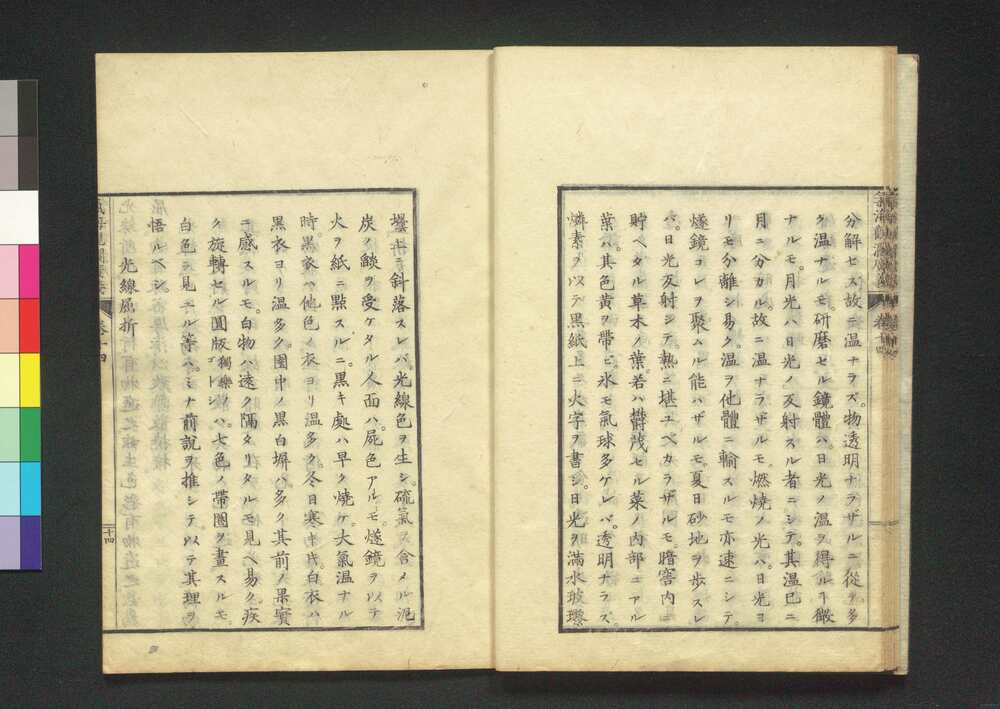 分解セズ。故ニ溫ナラズ。物透明ナラザルニ從ヲ多
ク溫ナルモ。硏磨セル鏡體ハ。日光ノ溫ヲ得ルヿ微
ナルモ。月光ハ日光ノ反射スル者ニシテ。其溫已ニ
月ニ分カル。故ニ溫ナラザルモ。燃燒ノ光ハ。日光ヨ
リモ分離シ易ク。溫ヲ他體ニ輸スルモ亦速ニシテ。
燧鏡コレヲ聚ムル能ハザルモ。夏日砂地ヲ歩スレ
バ。日光反射シテ熱ニ堪ユベカラザルモ。暗窖内ニ
貯ベタル草木ノ葉。若ハ鬱茂セル菜ノ内部ニアル
葉ハ。其色黄ヲ帶ビ。氷モ氣球多ケレバ。透明ナラズ。
燐素ヲ以テ黒紙上ニ火字ヲ書シ。日光ヲ滿水玻瓈
壜ニテ斜落スレバ。光線色ヲ生シ。硫氣ヲ含メル泥
炭ノ燄ヲ受ケタル人面ハ。屍色アルモ。燧鏡ヲ以テ
火ヲ紙ニ點スルニ。黒キ處ハ早ク燒ケ。大氣温ナル
時。黒衣ハ他色ノ衣ヨリ温多ク。冬日寒キ𪜈。白衣ハ
黒衣ヨリ温多ク。園中ノ黒白塀ハ多ク其前ノ果實
ニ感スルモ。白物ハ遠ク隔タリタルモ見ヘ易ク。疾
ク旋轉セル圓版獨樂ノゴトシハ。七色ノ帶圏ヲ畫スルモ。
白色ニ見ユル等ハ。ミナ前說ヲ推シテ。以テ其理ヲ
悟ルベシ。
光線屈折
卷十四
十四